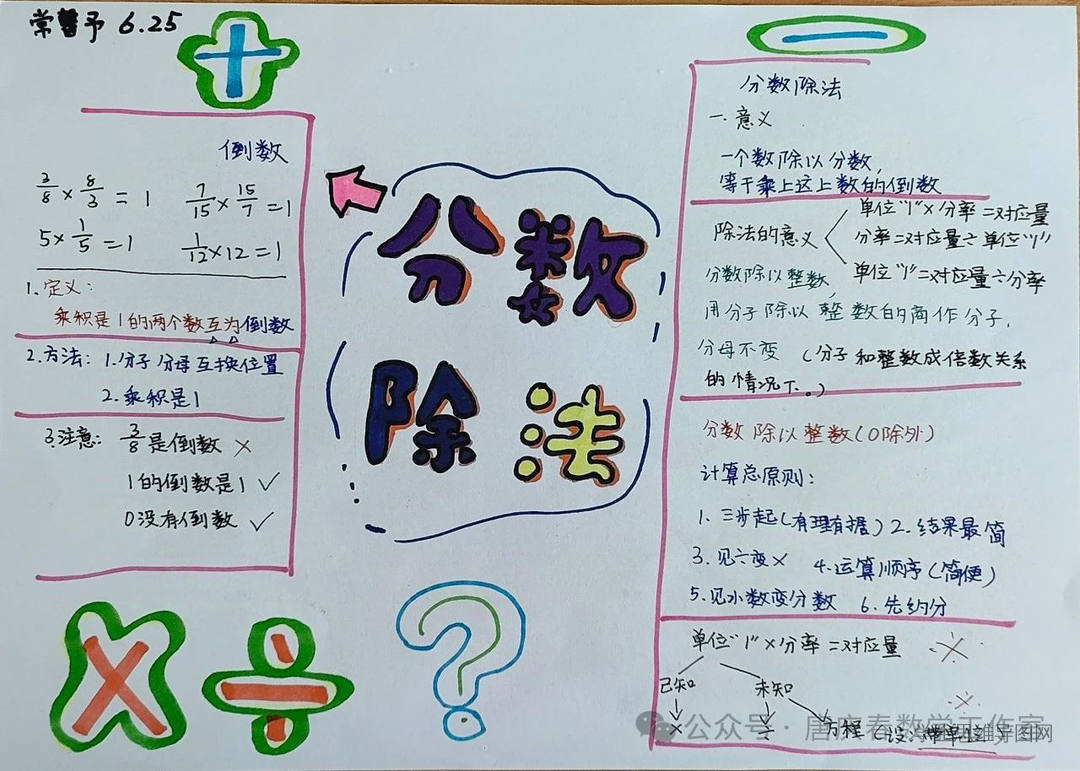 常馨予 6.25
倒数
3/8 × 8/3 = 1  7/15 × 15/7 = 1
5 × 1/5 = 1  1/12 × 12 = 1
1.定义:
乘积是1的两个数互为倒数
2.方法: 1.分子分母互换位置
2.乘积是1
3.注意: 3/8是倒数 ×
1的倒数是1 ✓
0没有倒数 ✓
分数
除法
分数除法
一.意义
一个数除以分数,
等于乘上这上数的倒数
除法的意义
单位"1"×分率=对应量
分率=对应量÷单位"1"
单位"1"=对应量÷分率
分数除以整数,
用分子除以整数的商作分子,
分母不变 (分子和整数成倍数关系
的情况下。)
分数除以整数(0除外)
计算总原则:
1. 三步起(有理有据) 2. 结果最简
3. 见÷变× 4.运算顺序(简便)
5.见小数变分数 6.先约分
单位"1"×分率=对应量
已知 未知
× ÷ 方程
公众号·唐庆春数学工作室